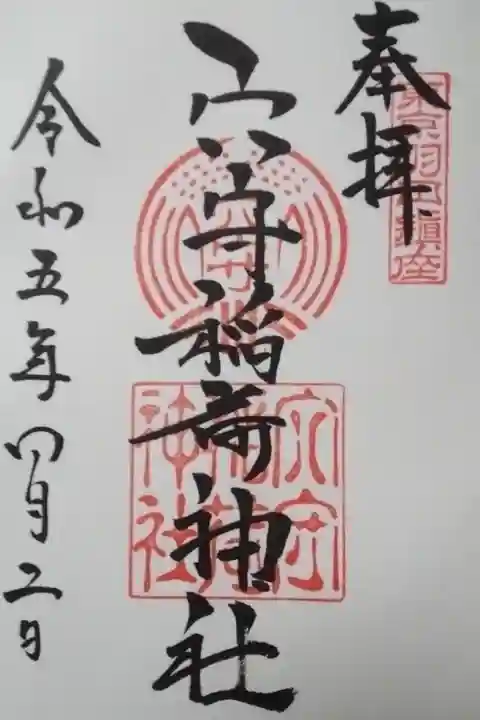 奉拝
東京羽田鎮座
穴守稲荷神社
穴守
稲荷
神社
令和五年四月二日